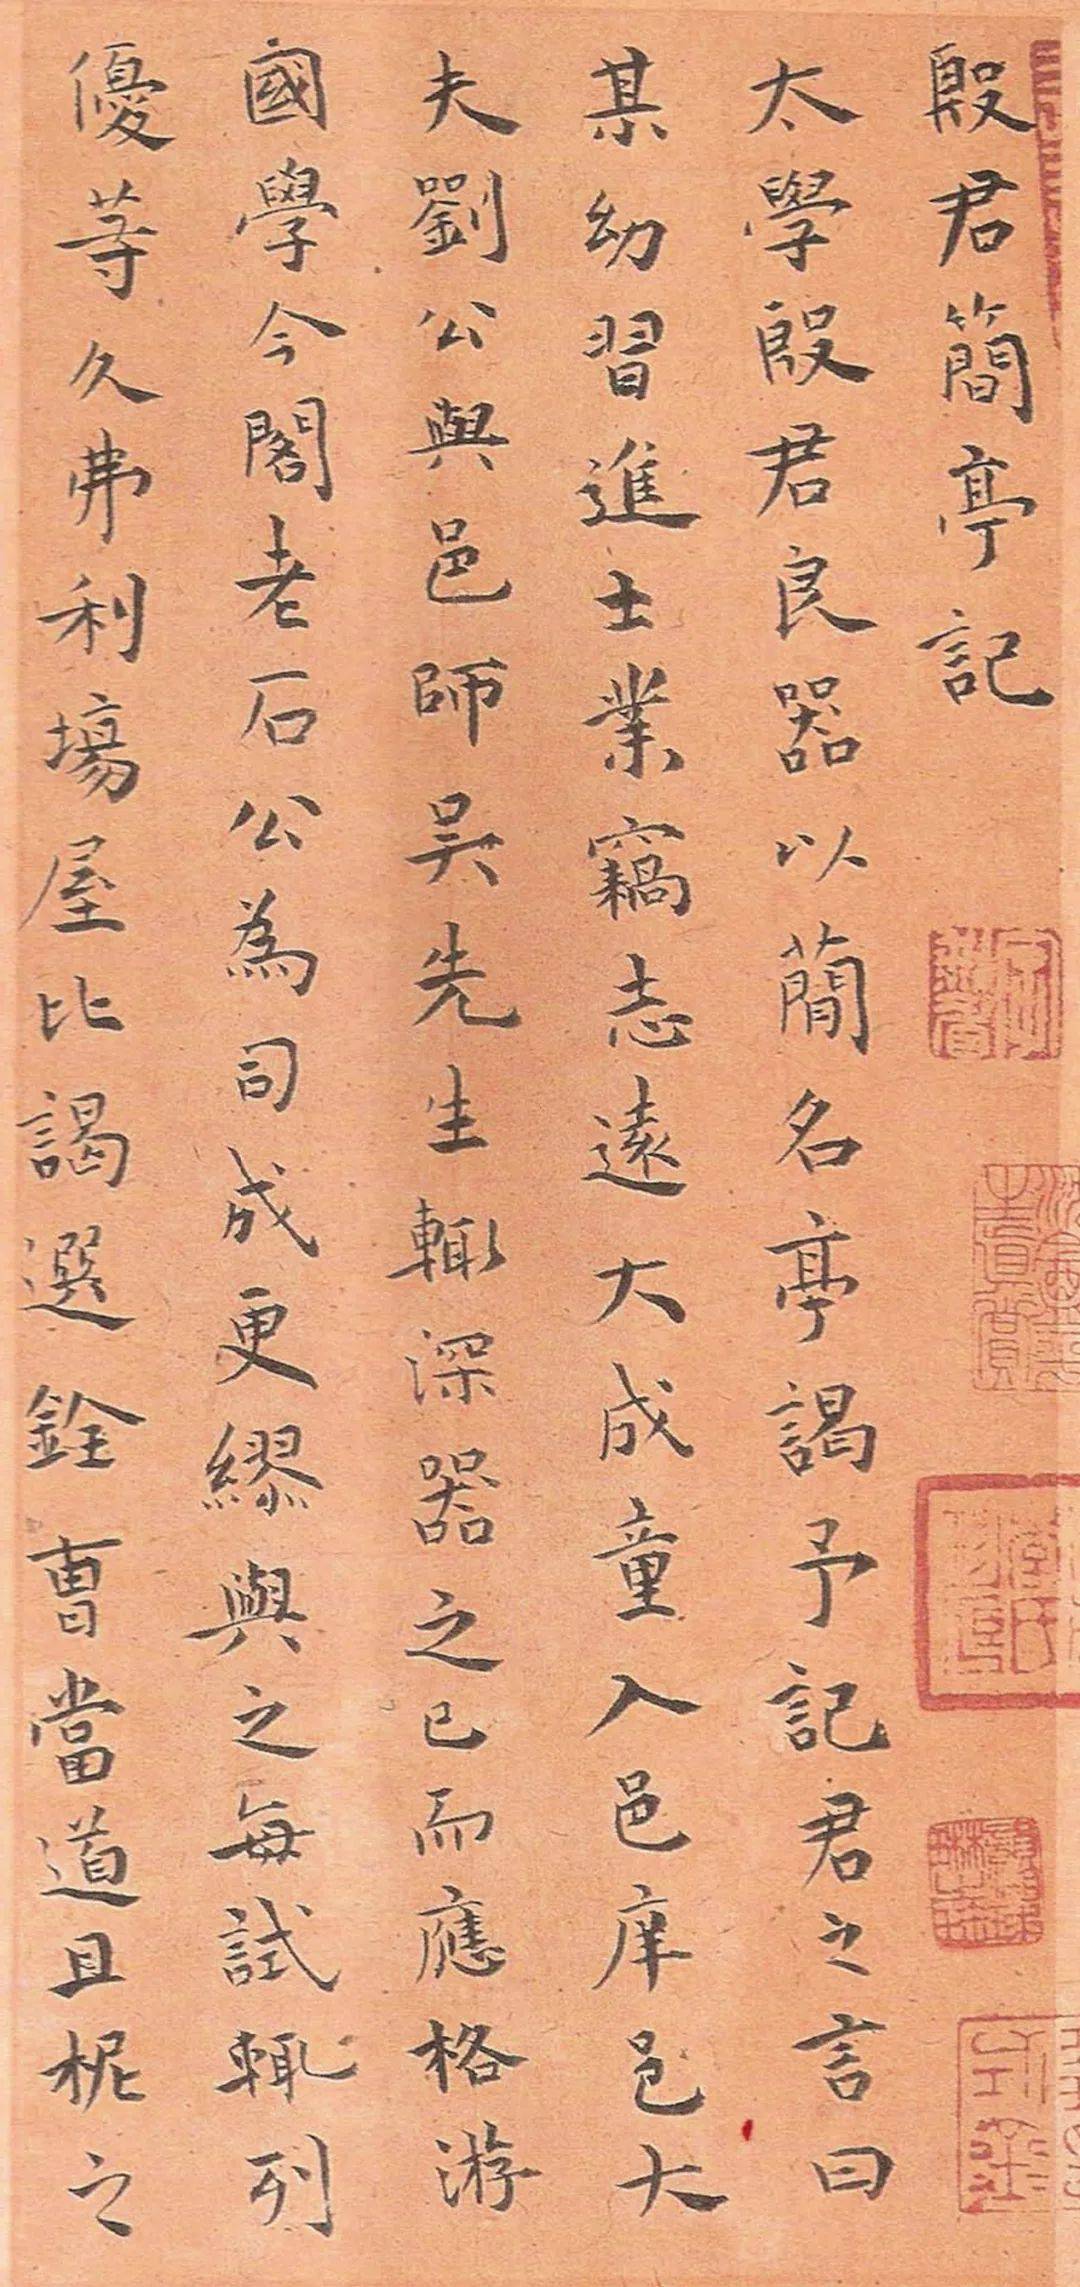 殷君簡亭記
太學殷君良器以蕳名亭謁予記君之言曰
某幼習進士業竊志遠大成童入邑庠邑大
夫劉公與邑師吴先生輙深器之已而應格游
國學今閣老石公為司成更繆與之每試輙列
優等久弗利場屋比謁選銓曹當道且柅之